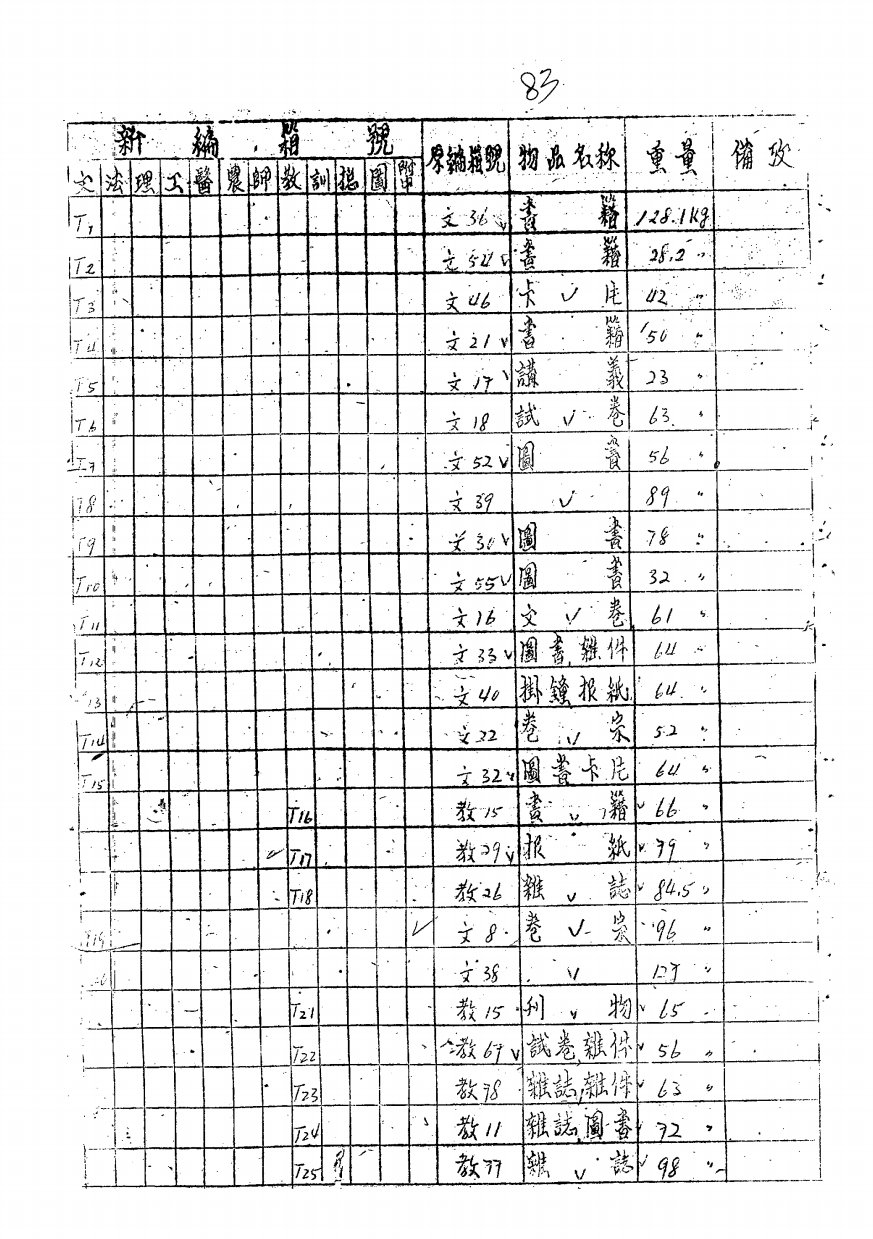 83
新編箱號 原編箱號 物品名称 重量 備攷
文 法 理 工 醫 農 師 教 訓 總 圖 附中
T1 文36 v 書籍 128.1Kg
T2 文54 v 書籍 28.2 〃
T3 文46 卡 v 片 42 〃
T4 文21 v 書籍 50 〃
T5 文17 講義 23 〃
T6 文18 試 v 卷 63 〃
T7 文52 v 圖書 56 〃
T8 文39 v 89 〃
T9 文30 v 圖書 78 〃
T10 文55 v 圖書 32 〃
T11 文16 文 v 卷 61 〃
T12 文33 v 圖書雜件 64 〃
T13 文40 掛鐘报紙 64 〃
T14 文22 卷 v 宗 52 〃
T15 文32 v 圖書卡片 64 〃
T16 教15 書 v 籍 v 66 〃
v T17 教29 v 报紙 v 79 〃
T18 教26 雜 v 誌 v 84.5 〃
T19 v 文8 卷 v 宗 96 〃
文38 v 127 〃
T21 教15 刊 v 物 v 65
T22 教67 v 試卷,雜件 v 56 〃
T23 教78 雜誌,雜件 v 63 〃
T24 教11 雜誌,圖書 v 72 〃
T25 教77 雜 v 誌 v 98 〃